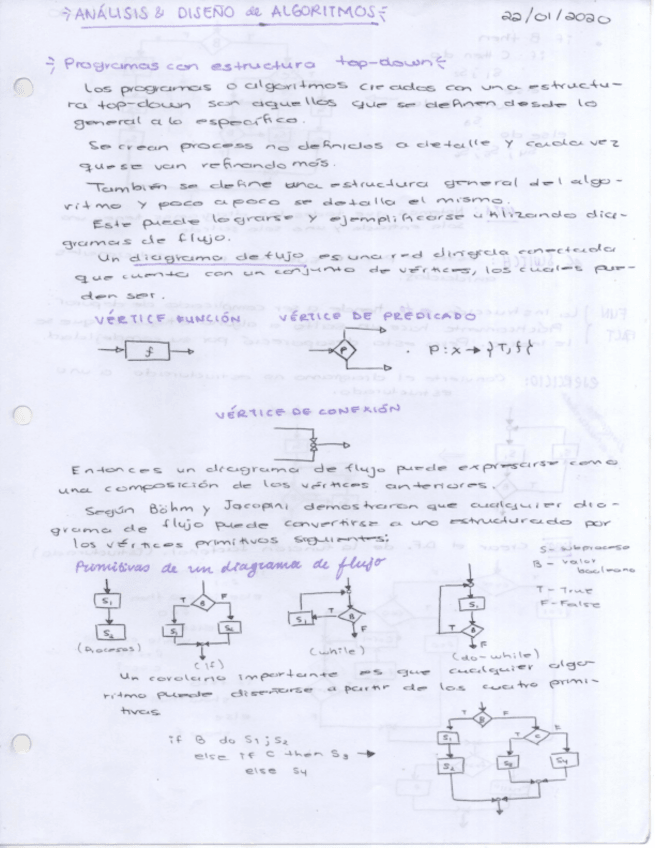 ANÁLISIS & DISEÑO de ALGORITMOS
22/01/2020
Programas con estructura top-down
Los programas o algoritmos creados con una estructu-
ra top-down son aquellos que se definen desde lo
general a lo específico.
Se crean process no definidos a detalle y cada vez
que se van refinando más.
También se define una estructura general del algo-
ritmo y poco a poco se detalla el mismo.
Este puede lograrse y ejemplificarse utilizando dia-
gramas de flujo.
Un diagrama de flujo es una red dirigida conectada
que cuenta con un conjunto de vértices, los cuales pue-
den ser.
VÉRTICE FUNCIÓN VÉRTICE DE PREDICADO
f P P: x → {T, f}
VÉRTICE DE CONEXIÓN
Entonces un diagrama de flujo puede expresarse como
una composición de los vértices anteriores.
Según Böhm y Jacopini demostraron que cualquier dia-
grama de flujo puede convertirse a uno estructurado por
los vértices primitivos siguientes:
Primitivas de un diagrama de flujo
S - subproceso
B - valor
booleano
T - True
F - False
S1 S2
(Procesos)
T B F S1 S2
(if)
T B F S1
(while)
S1 T B F
(do-while)
Un corolario importante es que cualquier algo-
ritmo puede diseñarse a partir de las cuatro primi-
tivas
if B do S1; S2
else if C then S3 →
else S4
T B F
S1 S2
T C F
S3 S4